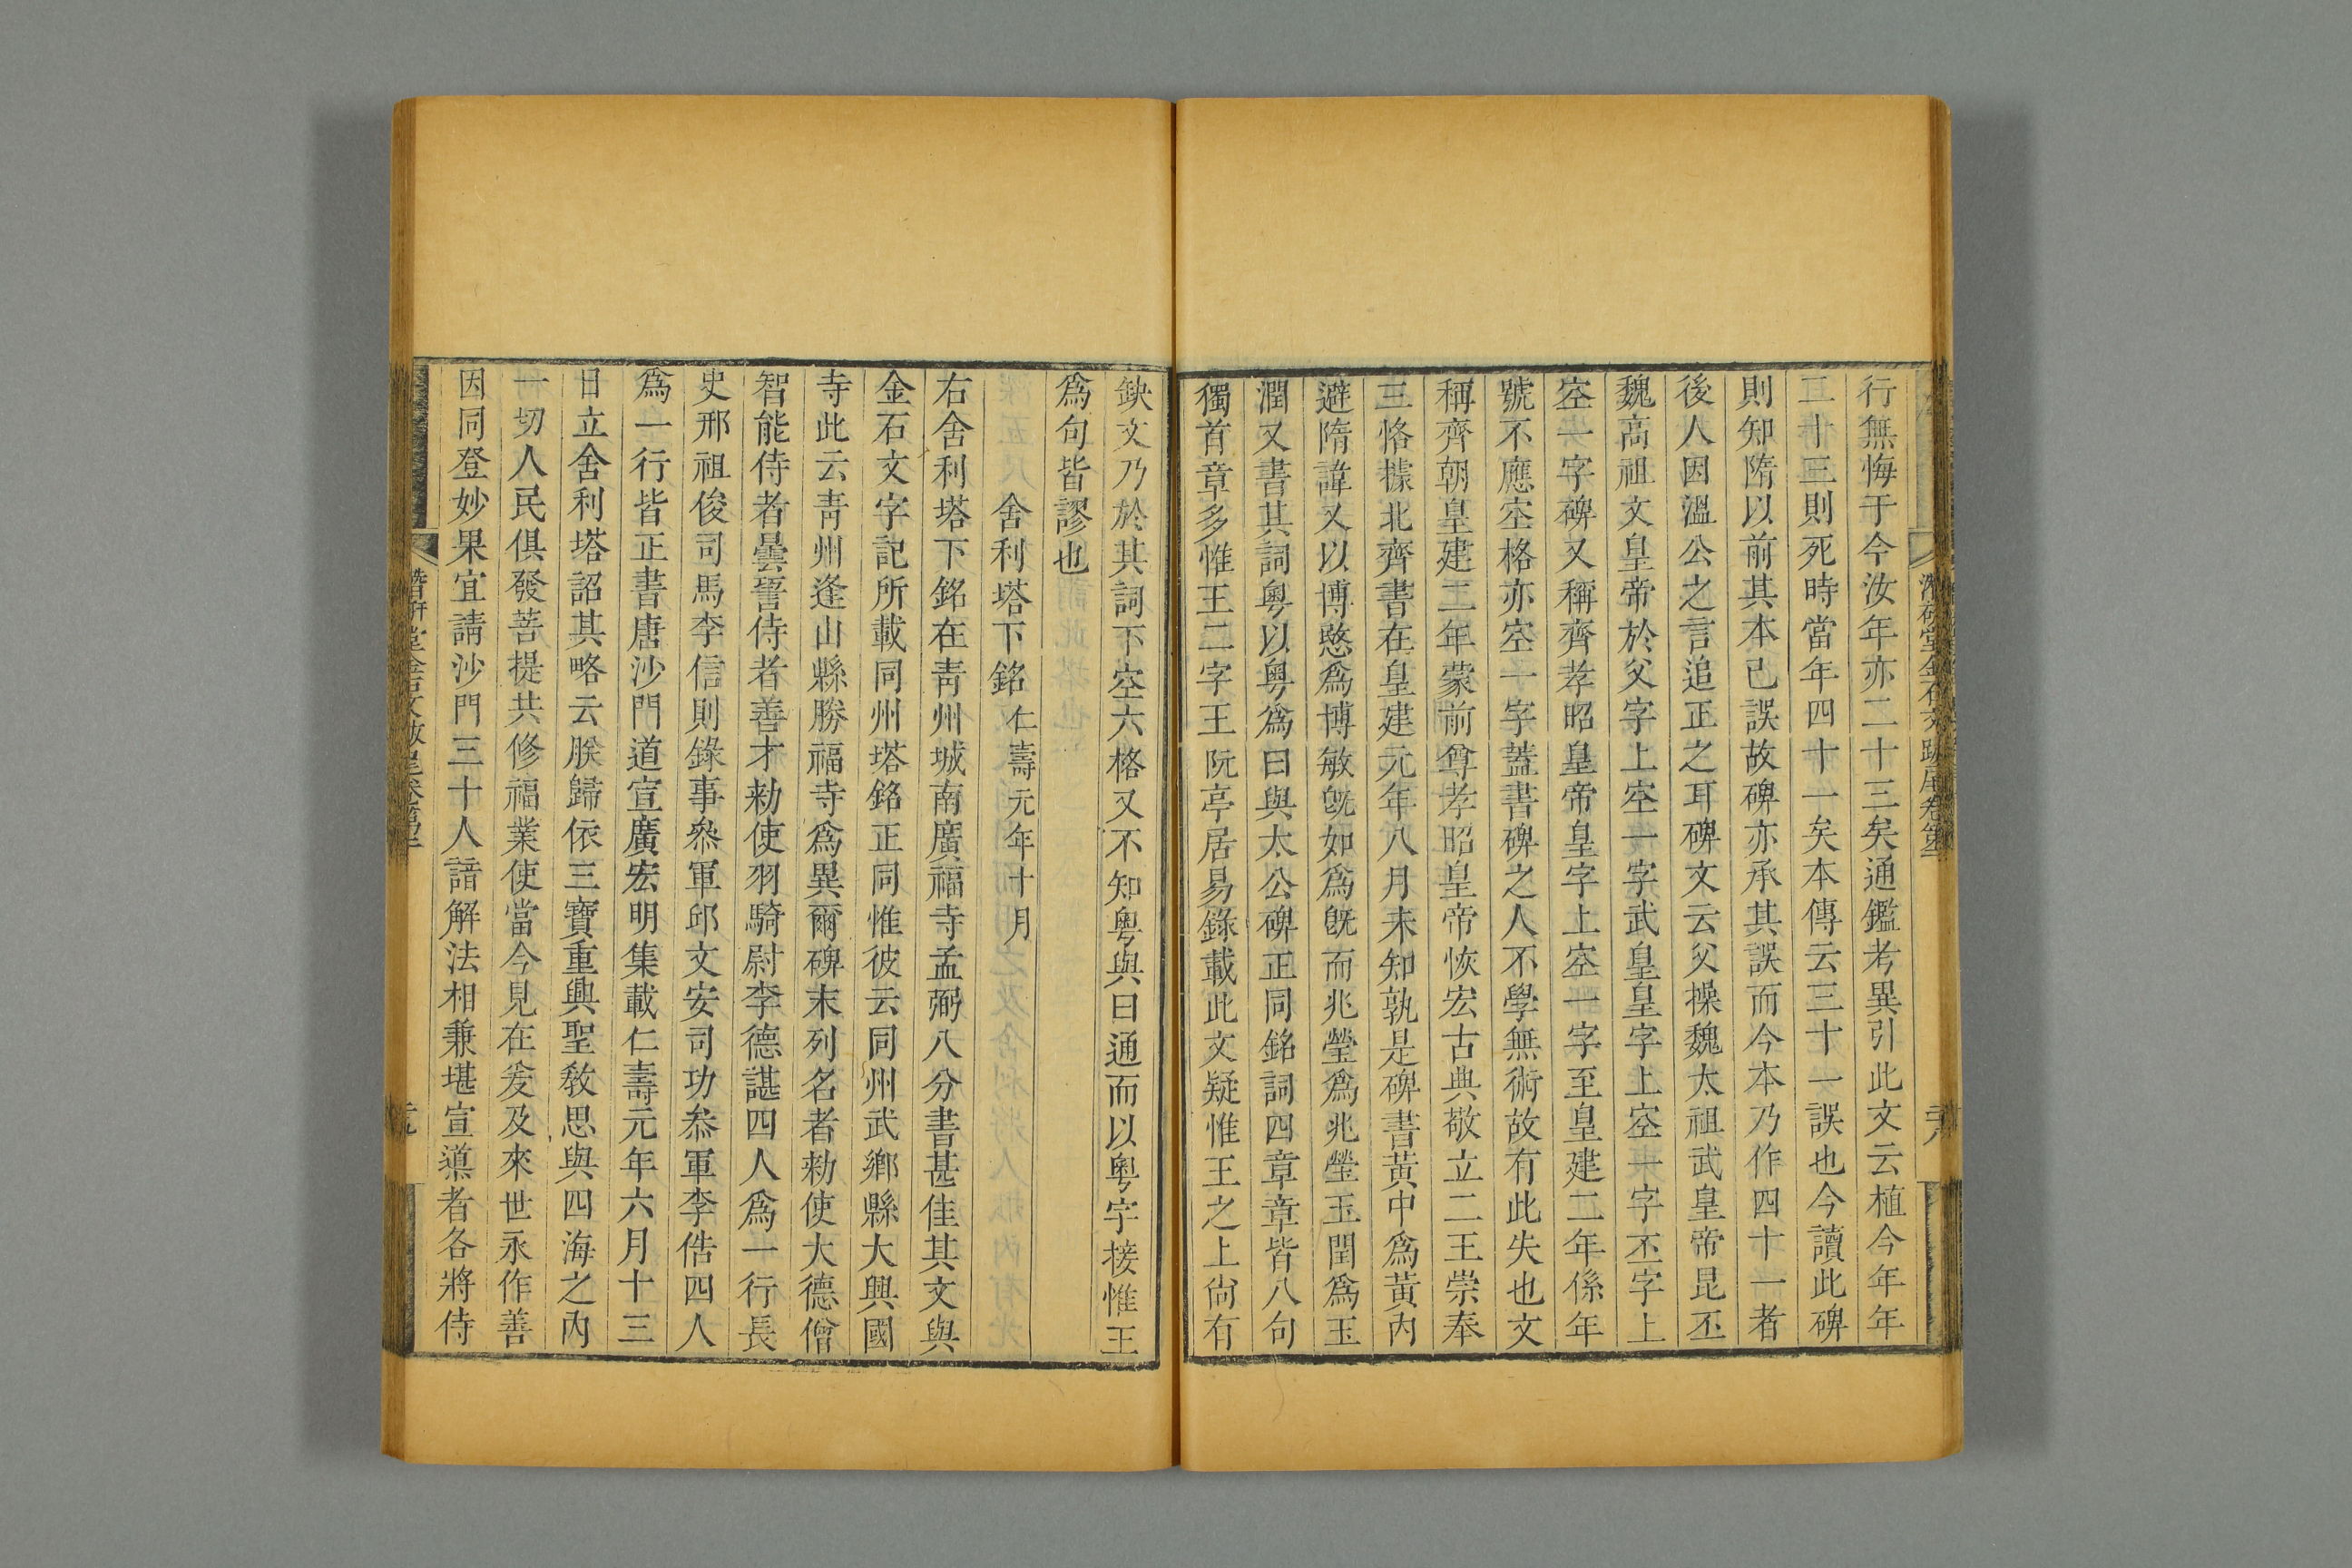 行無悔于今汝年亦二十三矣通鑑考異引此文云植今年年
二十三則死時當年四十一矣本傳云三十一誤也今讀此碑
則知隋以前其本已誤故碑亦承其誤而今本乃作四十一者
後人因溫公之言追正之耳碑文云父操魏太祖武皇帝昆丕
魏高祖文皇帝於父字上空一字武皇皇字上空一字丕字上
空一字碑又稱齊孝昭皇帝皇字上空一字至皇建二年係年
號不應空格亦空一字蓋書碑之人不學無術故有此失也文
稱齊朝皇建二年蒙前尊孝昭皇帝恢宏古典敬立二王崇奉
三恪據北齊書在皇建元年八月未知孰是碑書黃中為黃內
避隋諱又以博愍爲博敏旣如爲旣而兆瑩爲兆塋玉閏爲玉
潤又書其詞粵以粵爲曰與太公碑正同銘詞四章章皆八句
獨首章多惟王二字王阮亭居易錄載此文疑惟王之上尙有
缺文乃於其詞下空六格又不知粵與曰通而以粵字接惟王
爲句皆謬也
舍利塔下銘仁壽元年十月
右舍利塔下銘在靑州城南廣福寺孟弼八分書甚佳其文與
金石文字記所載同州塔銘正同惟彼云同州武鄕縣大興國
寺此云靑州逢山縣勝福寺爲異爾碑末列名者勅使大德僧
智能侍者曇䛒侍者善才勅使羽騎尉李德諶四人爲一行長
史邢祖俊司馬李信則錄事叅軍邱文安司功叅軍李佸四人
爲一行皆正書唐沙門道宣廣宏明集載仁壽元年六月十三
日立舍利塔詔其略云朕歸依三寶重興聖敎思與四海之內
一切人民俱發菩提共修福業使當今見在爰及來世永作善
因同登妙果宜請沙門三十人諳解法相兼堪宣導者各將侍
潛硏堂金石文跋尾卷第三
二十八
潛硏堂金石文跋尾卷第三
二十九